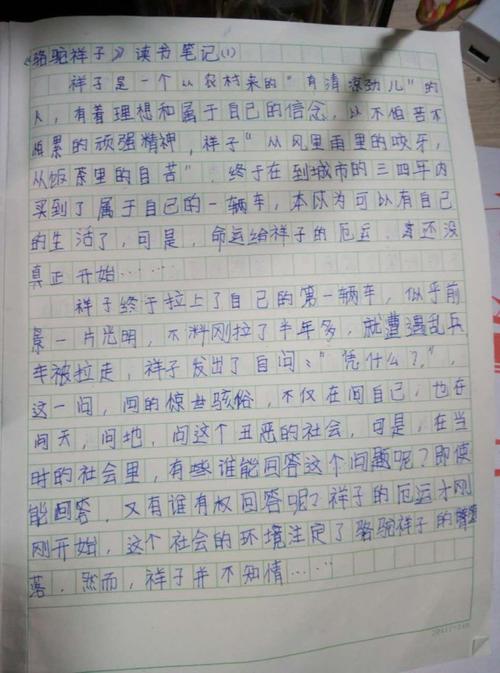 《骆驼祥子》读书笔记(1)
祥子是一个从农村来的"有清凉劲儿"的
人,有着理想和属于自己的信念,以不怕苦不
怕累的顽强精神,祥子"从风里雨里的咬牙,
从饭茶里的自苦",终于在到城市的三四年内
买到了属于自己的一辆车,本以为可以有自己
的生活了,可是,命运给祥子的厄运,还没
真正开始……
祥子终于拉上了自己的第一辆车,似乎前
景一片光明,不料刚拉了半年多,就遭遇乱兵
车被拉走,祥子发出了自问:"凭什么?",
这一问,问的惊世骇俗,不仅在问自己,也在
问天,问地,问这个丑恶的社会,可是,在当
时的社会里,有谁能回答这个问题呢?即使
能回答,又有谁有权回答呢?祥子的厄运才刚
刚开始,这个社会的环境注定了骆驼祥子的
落,然而,祥子并不知情……